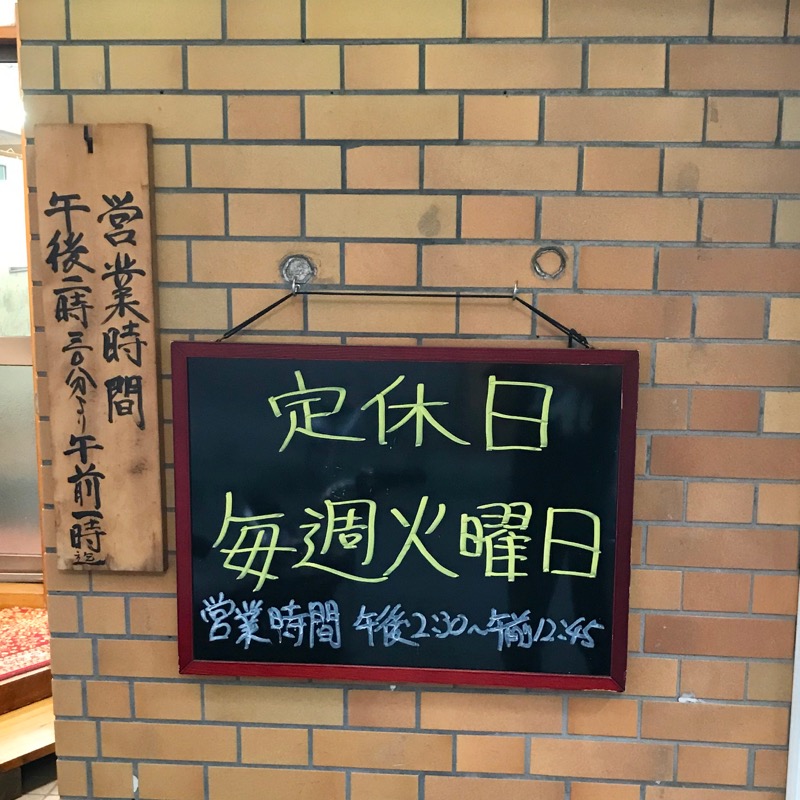 営業時間
午後二時三〇分より午前一時迄
定休日
毎週火曜日
営業時間 午後2:30~午前12:45